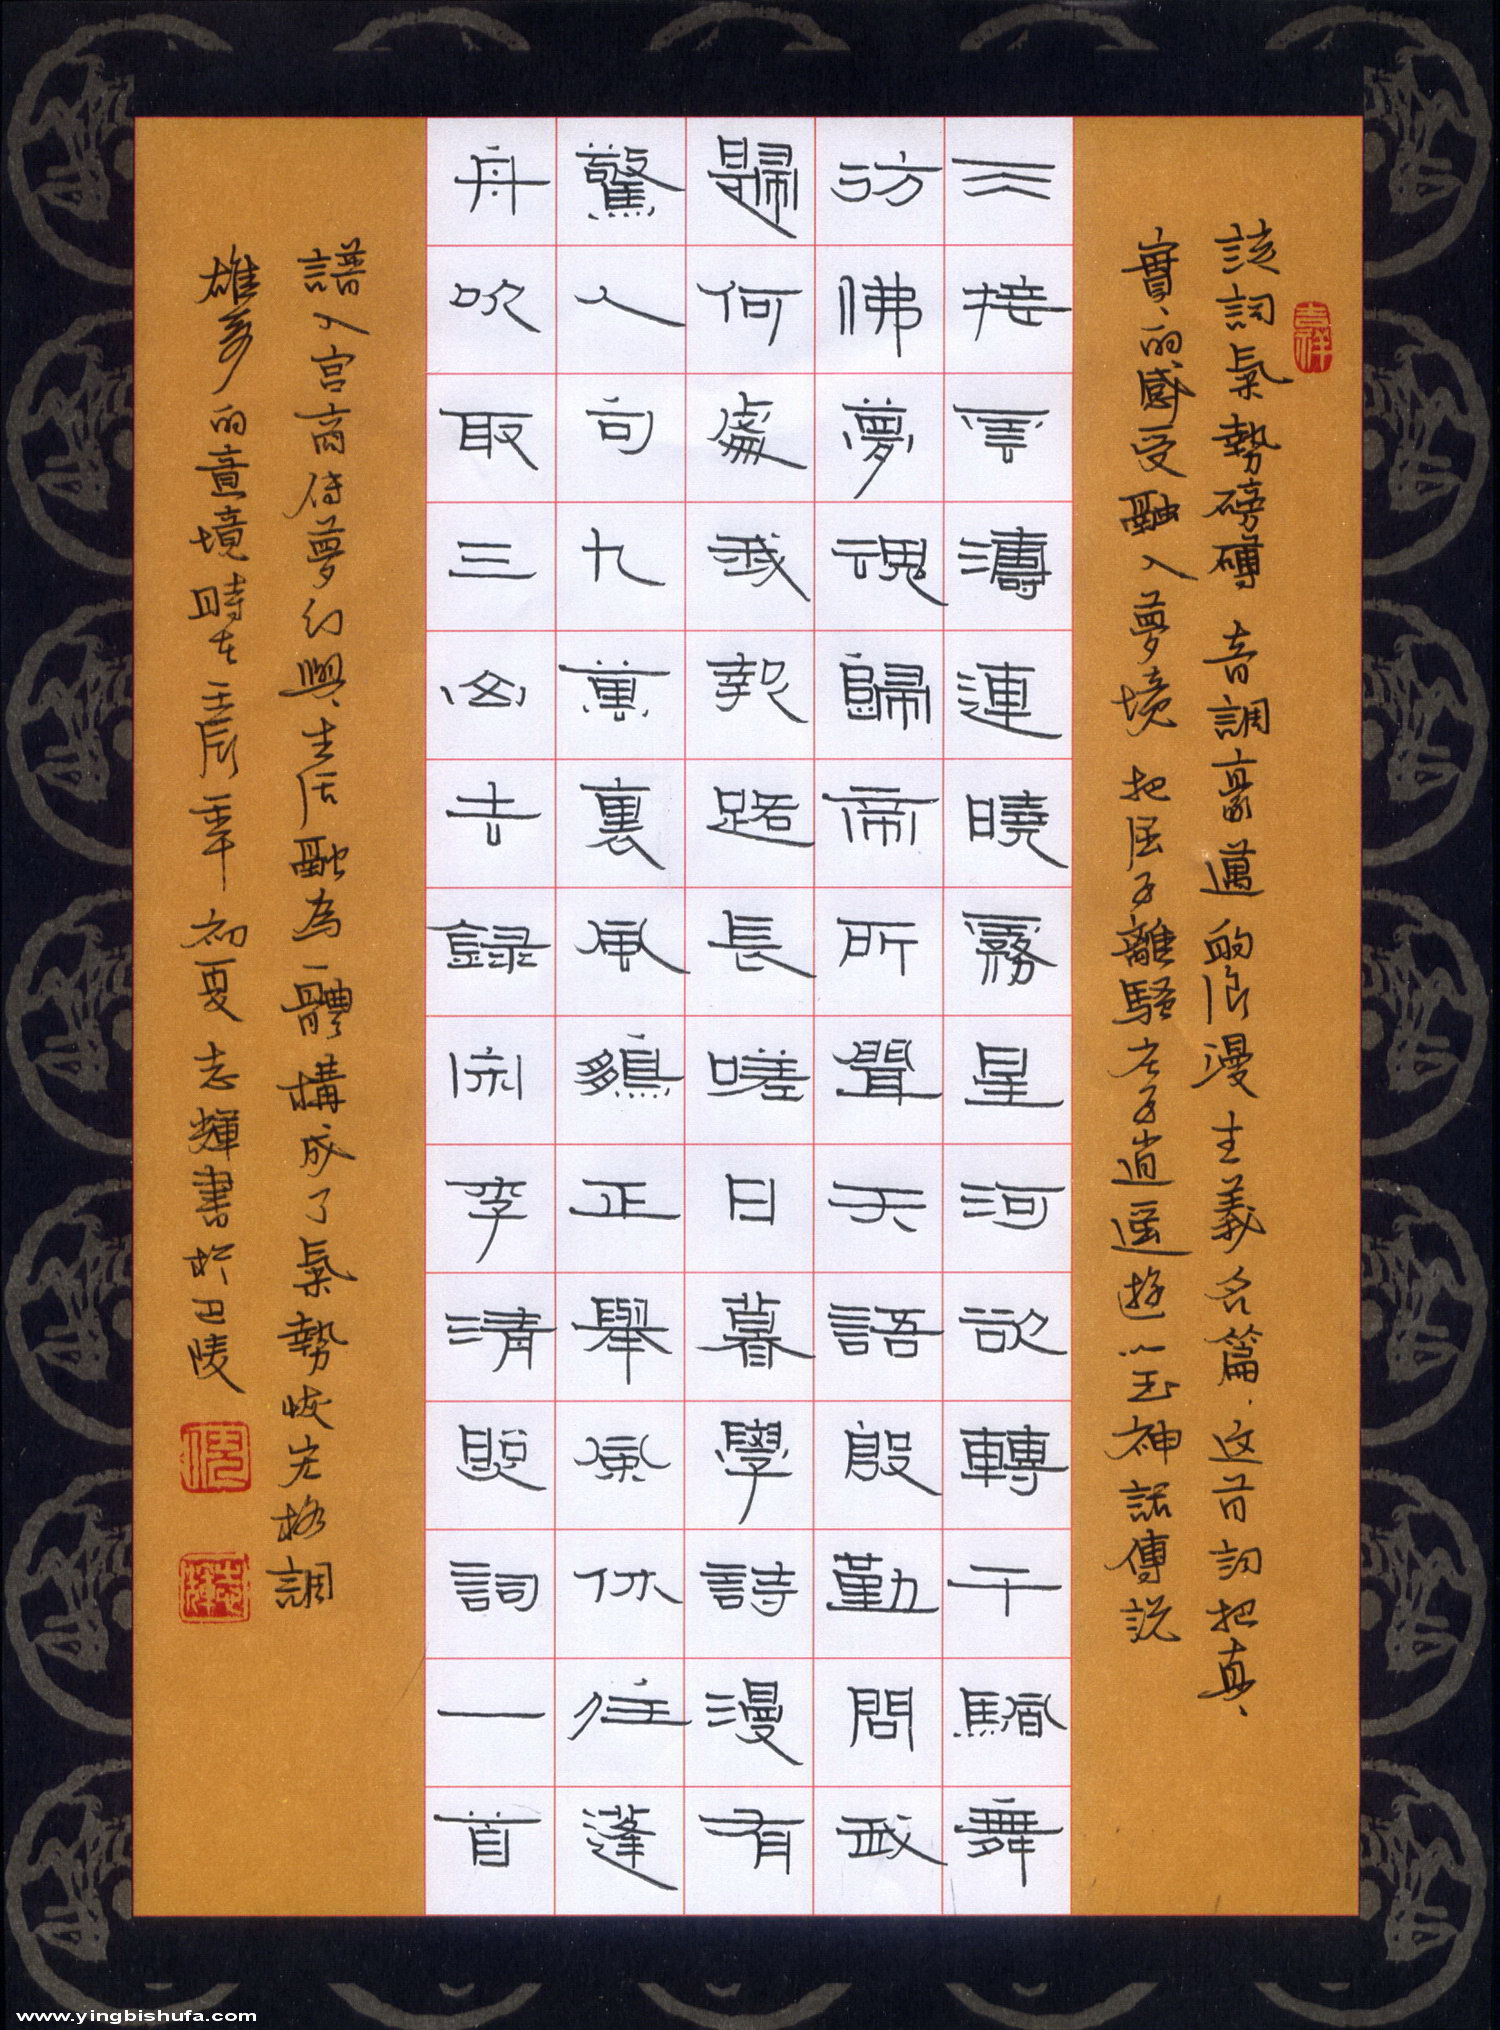 該詞氣勢磅礴音調豪邁的浪漫主義名篇、这首詞把真、
實、的感受融入夢境把屈子離騷庄子逍遥遊以至神話傳説
天接雲濤連曉霧星河欲轉千驅舞
彷佛夢魂歸帝所聞天語殷勤問我
歸何處我報路長嗟日暮學詩漫有
驚人句九萬裏風鵬正舉風休住蓬
舟吹取三山去録宋李清照詞一首
譜入宫商使夢幻與生活融為一體構成了氣勢恢宏格調
雄奇的意境時在壬辰年初夏志輝書於巴陵
吉祥
志輝
www.yingbishufa.com